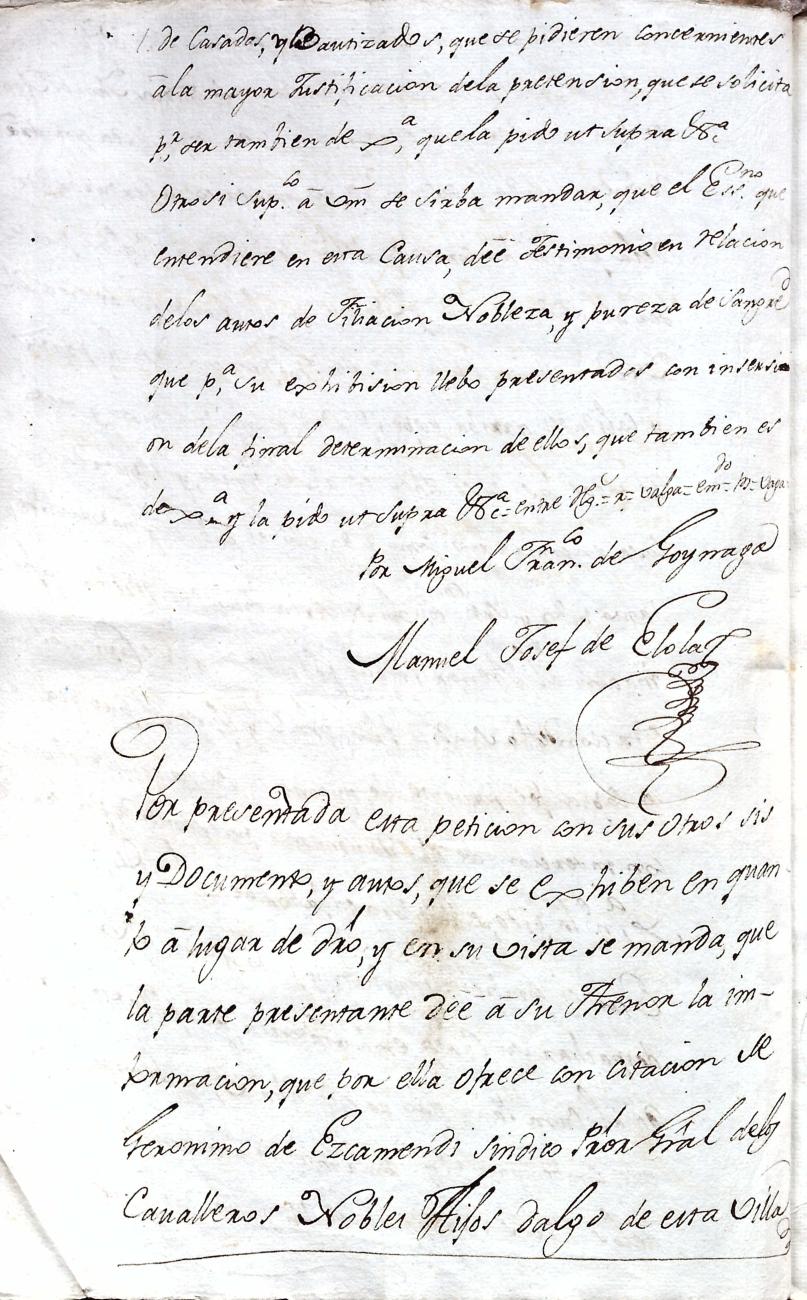 de Casados, y Bautizados, que se pidieren concernientes
â la mayor Justificacion dela pretension, que se solicita
p.r ser tambien de x.a, que la pido ut supra &c.a
Otrosi Sup.co â Vm se sirba mandar, que el Ess.no que
entendiere en esta Causa, deê Testimonio en relacion
delos autos de Filiacion Nobleza, y pureza de Sangre
que p.a su exhibision llebo presentados con insersi-
on dela final determinacion de ellos, que tambien es
de x.a y la pido ut supra &c.a = entre = r = valga = em.do = valga
Por Miguel Fran.co de Goynaga
Manuel Josef de Elola
Por presentada esta peticion con sus Otros sis
y Documento, y autos, que se exhiben en quan-
to â lugar de dr̃o, y en su vista se manda, que
la parte presentante deê â su Thenor la im-
formacion, que por ella ofrece con citacion de
Geronimo de Ezcamendi sindico Pr̃or Gr̃al delos
Cavalleros Nobles Hijos dalgo de esta Villa